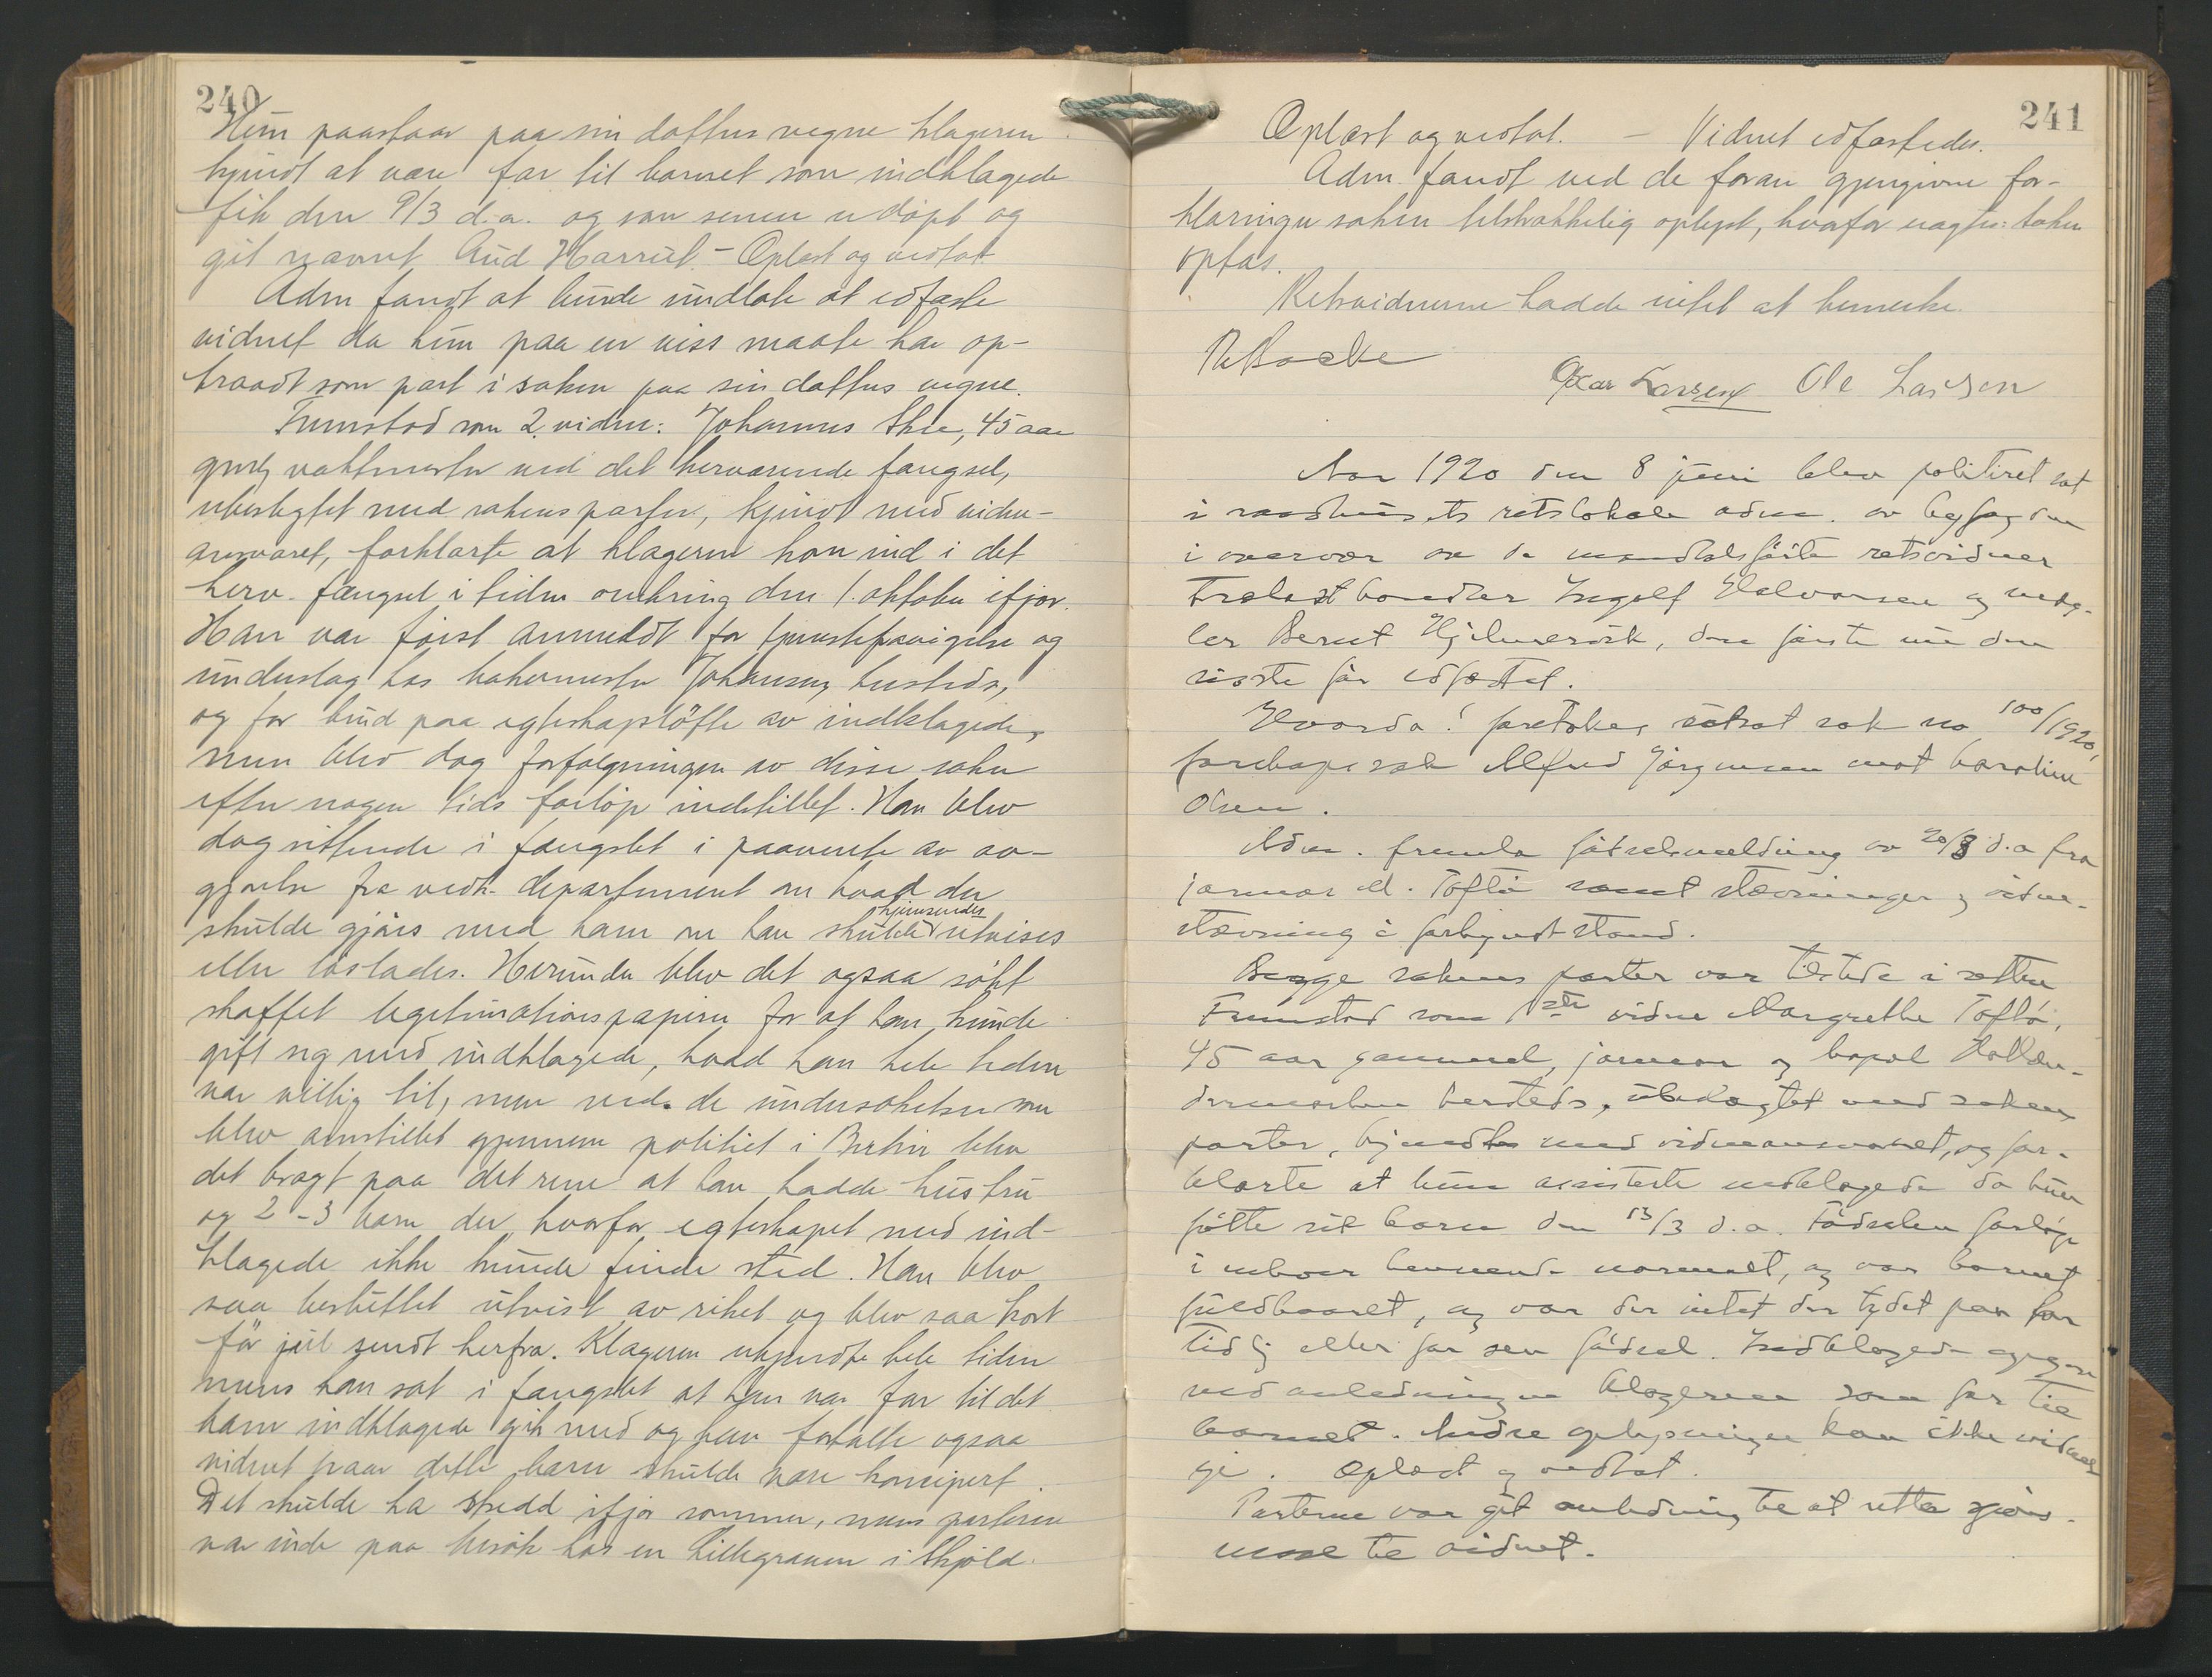 240
Hun paastaar paa sin datters vegne klageren
kjendt at være far til barnet som indklagede
fik den 9/3 d.a. og som senere er döpt og
git navnet Aud Harriet - Oplæst og vedtat
Adm fandt at kunde undlate at edfæste
vidnet da hun paa en viss maate har op-
traadt som part i saken paa sin datters vegne.
Fremstod som 2. vidne: Johannes Skee, 45 aar
gml, vaktmester ved det herværende fængsel,
ubeslegtet med sakens parter, kjendt med vidne-
ansvaret, forklarte at klageren kom ind i det
herv. fængsel i tiden omkring den 1. oktober ifjor.
Han var först anmeldt for tjenestefravigelse og
underslag hos bakermester Johansen, hersteds,
og for brud paa egteskapslöfte av indklagede,
men blev dog forfölgningen av disse saker
efter nogen tids forlöp indstillet. Han blev
dog sittende i fængslet i paavente av av-
gjörelse fra vedk. departement om hvad der
skulde gjöres med ham om han skulde hjemsendes utvises
eller löslates. Herunder blev det ogsaa sökt
skaffet legitimationspapirer for at han kunde
gift sig med indklagede, hvad han hele tiden
var villig til, men ved de undersökelser som
blev anstillet gjennem politiet i Berlin blev
det bragt paa det rene at han hadde hustru
og 2-3 barn der, hvorfor egteskapet med ind-
klagede ikke kunde finde sted. Han blev
saa besluttet utvist av riket og blev saa kort
för jul sendt herfra. Klageren erkjendte hele tiden
mens han sat i fængslet at han var far til det
barn indklagede gik med og han fortalte ogsaa
vidnet naar dette barn skulde være koncipert.
Det skulde ha skedd ifjor sommer, mens parterne
var inde paa besök hos en Lillegraven i Skjold.
241
Oplæst og vedtat. - Vidnet edfæstedes.
Adm. fandt ved de foran gjengivne for-
klaringer saken tilstrækkelig oplyst, hvorfor saken
optas.
Retsvidnerne hadde intet at bemerke.
Oskar Larsen Ole Larsen
Aar 1920 den 8 juni blev politiret sat
i raadhusets retslokale adm. av
i overvær av de mandtalsförte retsvidner
Trælasthandler Ingolf Halvorsen og mæg-
ler Bernt Hjelmervik, den förste nu den
sidste för edfæstet.
Hvorda! foretokes utsat sak no 100/1920,
farskapssak Alfred Jörgensen mot Karoline
Olsen.
Adm. fremla födselsmelding av 20/3 d.a fra
jormor M. Töftö samt stævninger og vidne-
stævning i forkyndt stand.
Begge sakens parter var tilstede i retten
Fremstod som 1ste vidne Margrethe Töftö,
45 aar gammel, jormor og bopæl
hersteds, ubeslægtet med sakens
parter, kjendt med vidneansvaret, og for-
klarte at hun assisterte indklagede da hun
fötte sit barn den 13/3 d.a. Födselen forlöp
i enhver henseende normalt, og var barnet
fuldbaaret, og var der intet der tydet paa for
tidlig eller for sen födsel. Indklagede opgav
ved anledningen klageren som far til
barnet. Andre oplysninger kan ikke vidnet
gi. Oplæst og vedtat.
Parterne var git anledning til at rette spörs-
maal til vidnet.